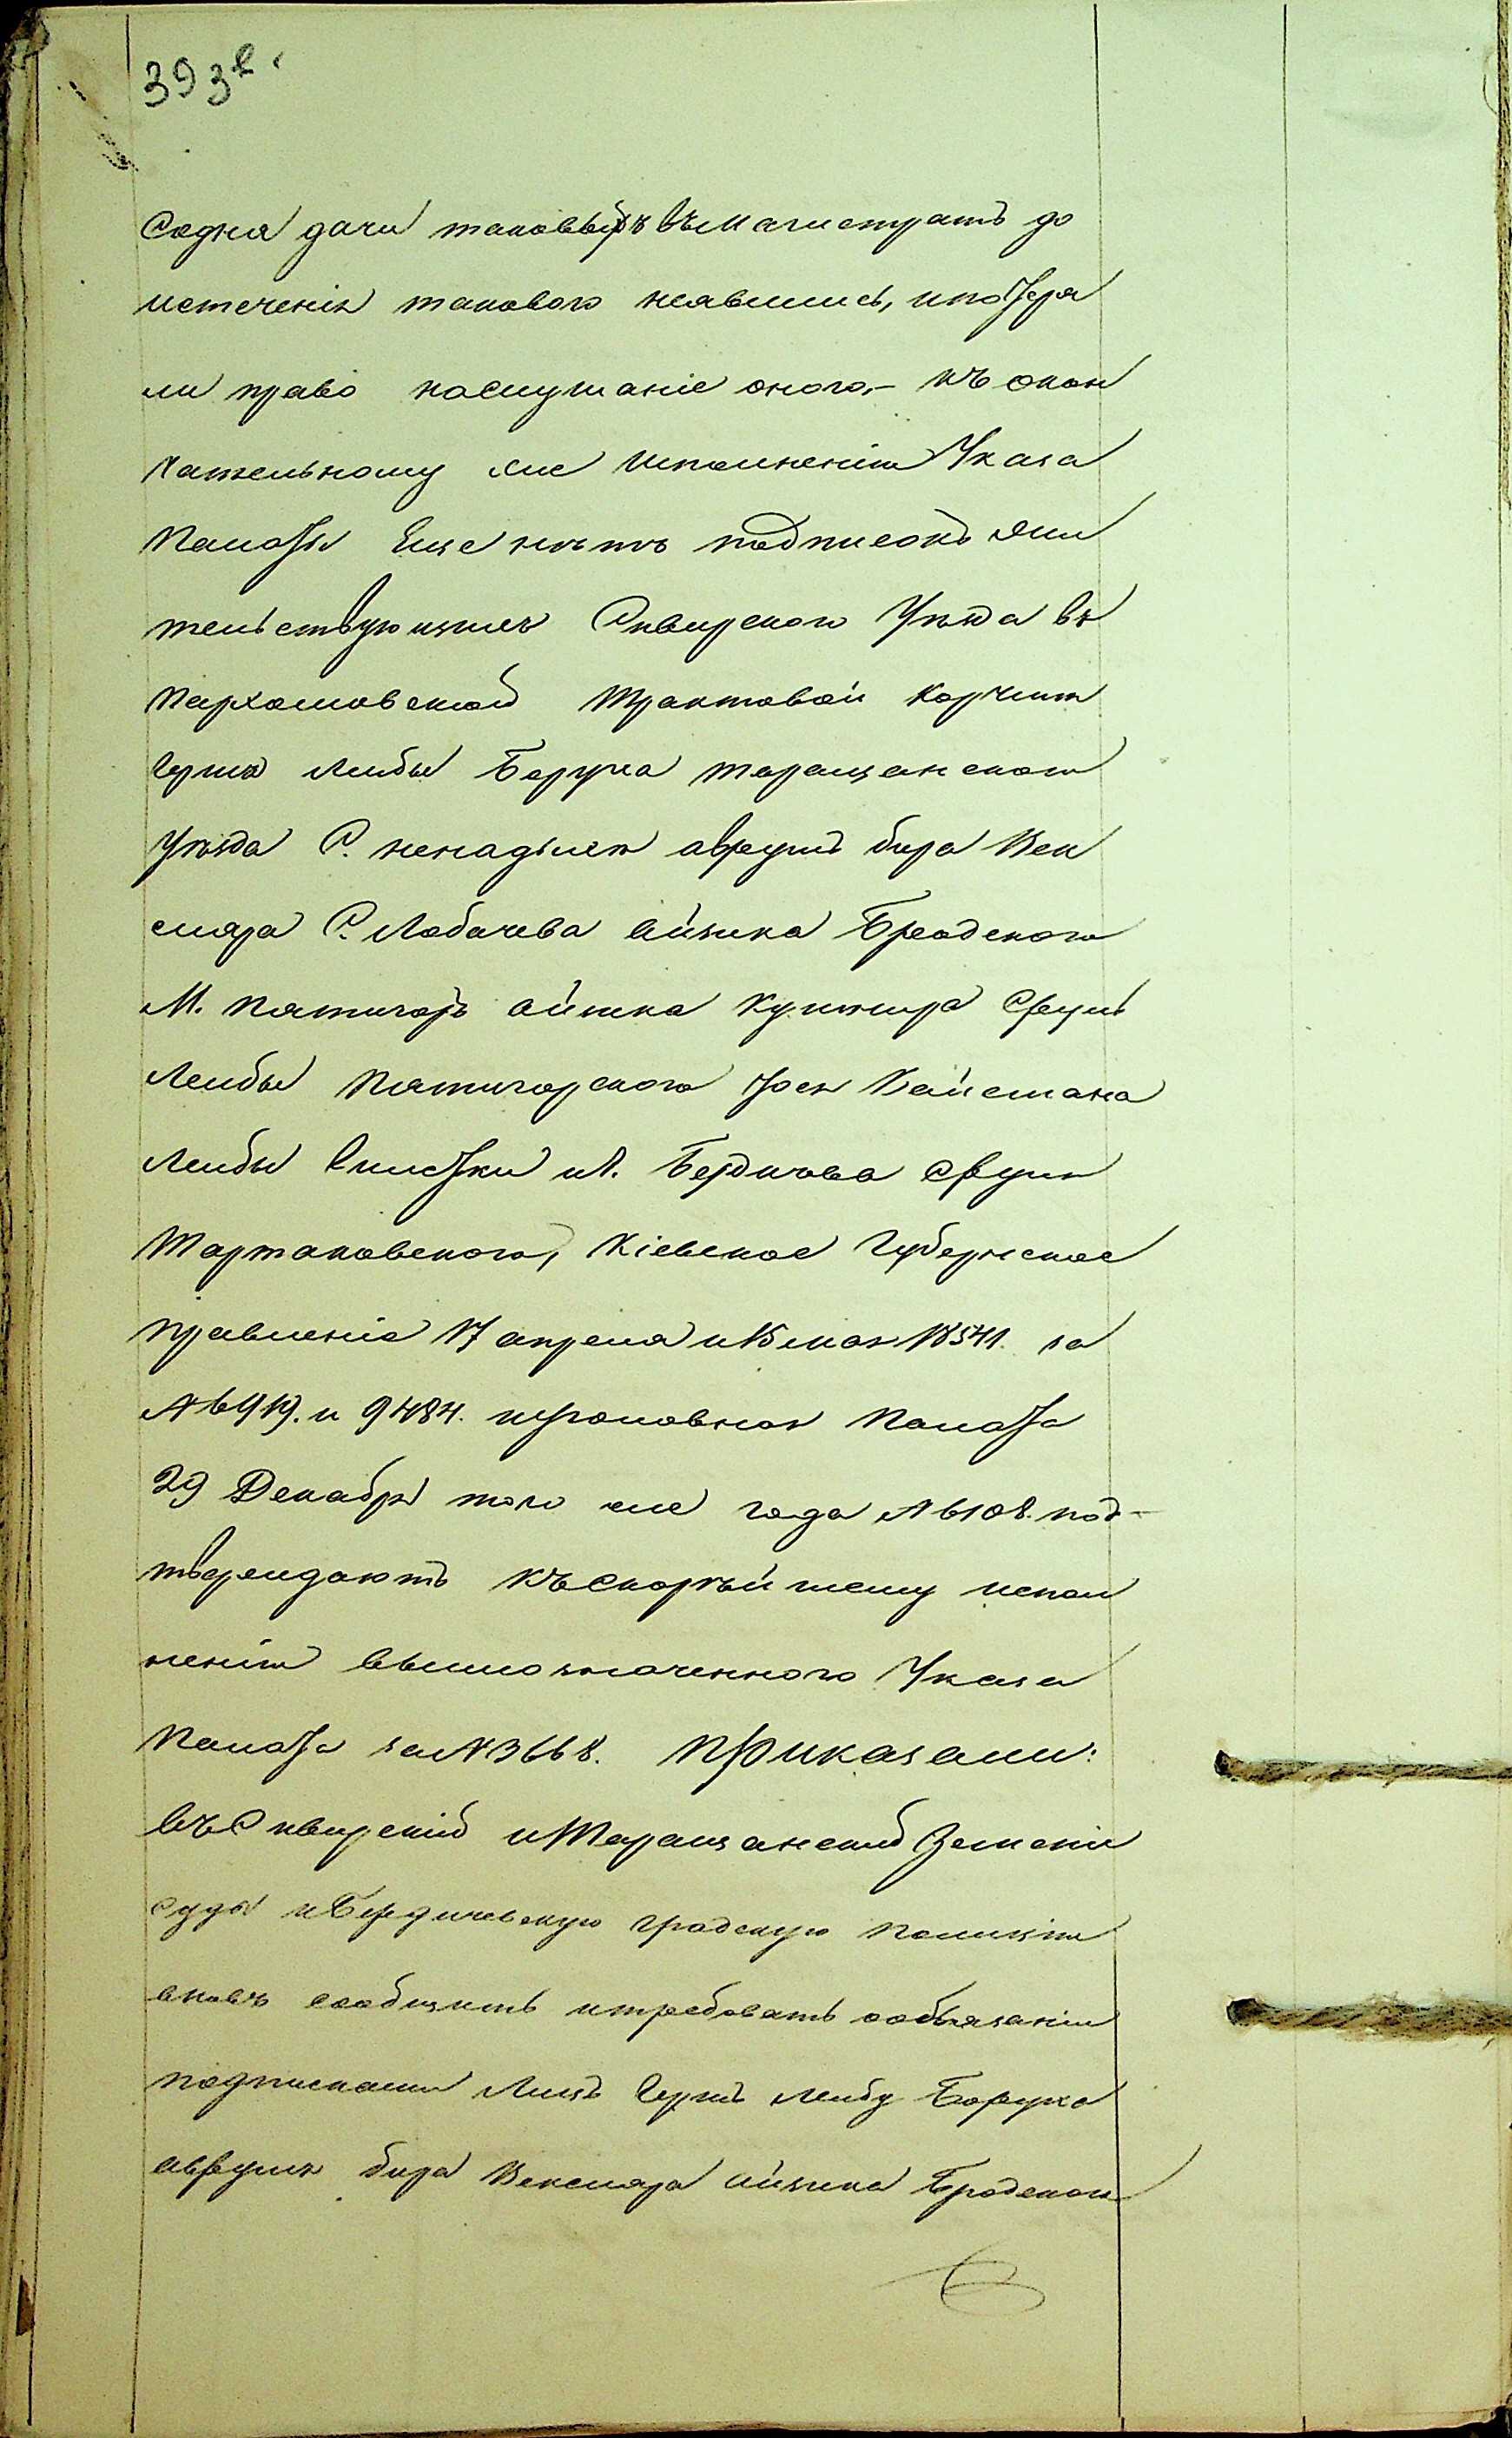 393 в.
Содня дачи таковыхъ въмагистратъ до
истеченія таковаго неявились, ипотеря
ли право наслушаніе онаго.- къ окон
чательному же исполненію Указа
Палаты Еще нѣтъ подписокъ жи
тельствующихъ Сквирскаго Уѣзда въ
Пархомовской трактовой корчмѣ
Лейбы Боруха таращанского
Уѣзда С. ненадыхи бера Век
сляра С. Лобачева айзика Бродского
М. Пятигоръ айзика Кушнира Сруль
Лейбы Пятигорского Вайсмана
Лейбы и г. Бердичева Сруля
Тартаковского, Кіевское Губернское
правленіе 17 апреля и 15 мая 1841. за
№ 6919. и 9484. Палата
29 Декабря того же года № 6108. под-
тверждаютъ къскорѣйшему испол
ненію вышеозначенного Указа
Палата за № 3668. Приказали:
въСквирскій иТаращанскій Земскіи
Суды иБердичевскую градскую полицію
вновь сообщить итребовать ообязаніи
подписками Лицъ Лейбу Боруха
бера Векслера айзика Бродского